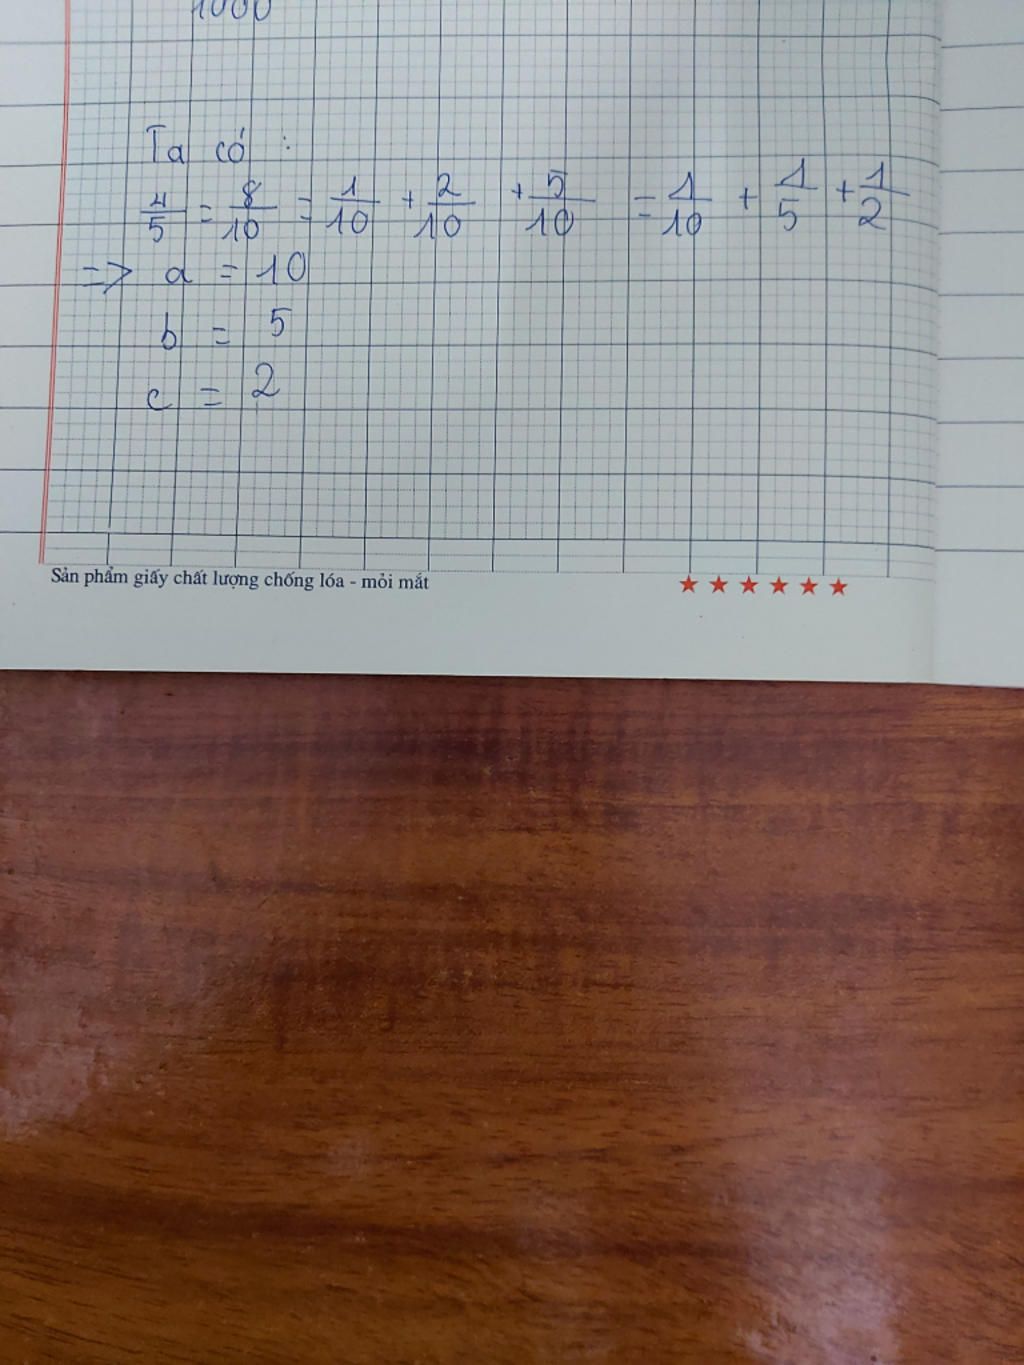 1000
Ta có :
4/5 = 8/10 = 1/10 + 2/10 + 5/10 = 1/10 + 1/5 + 1/2
=> a = 10
b = 5
c = 2
Sản phẩm giấy chất lượng chống lóa - mỏi mắt